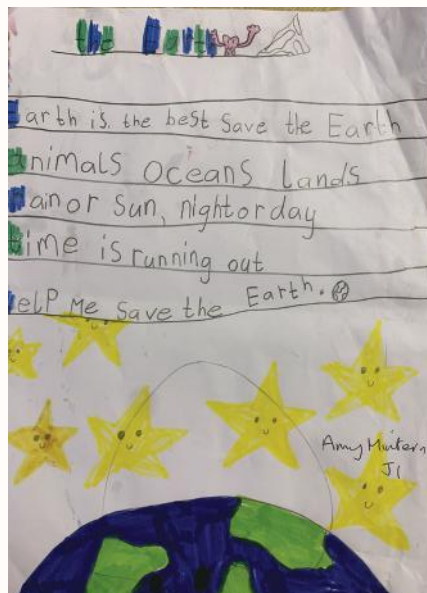 the Earth
Earth is. the best Save the Earth
animals oceans lands
Rain or sun, night or day
time is running out
Help Me save the Earth.
Amy
J1